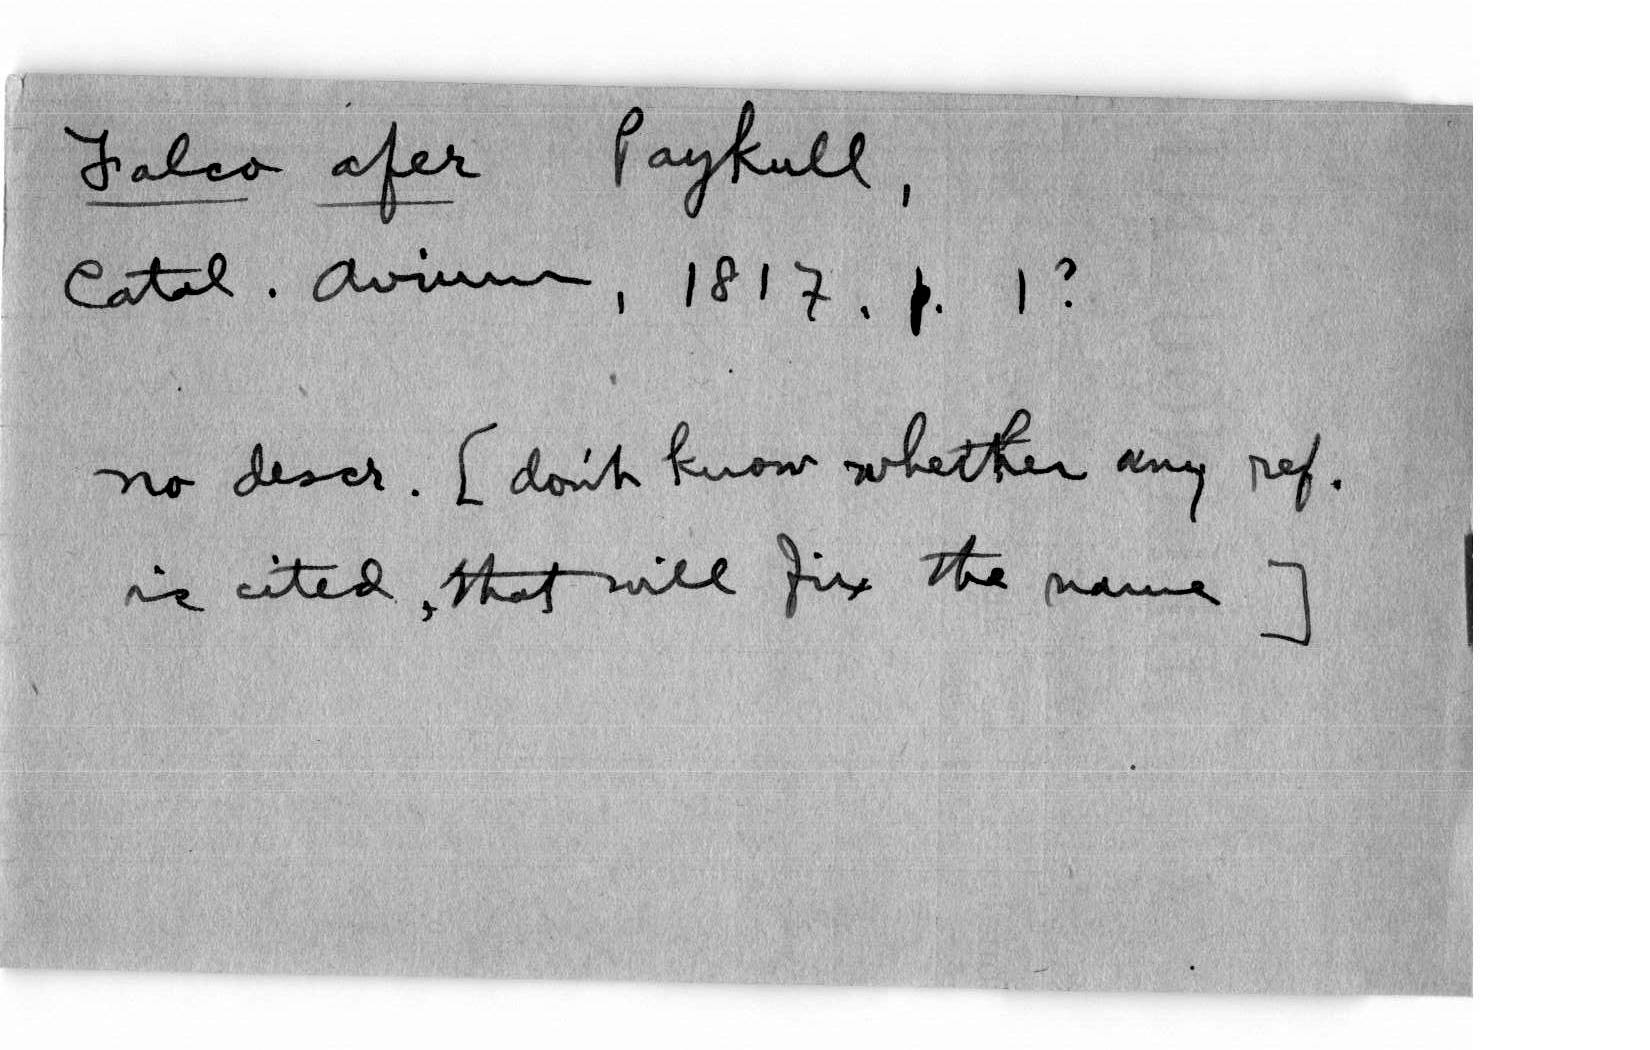 Falco afer Paykull,
Catal. Avium, 1817. p. 1?
no descr. [don't know whether any ref.
is cited, that will fix the name]